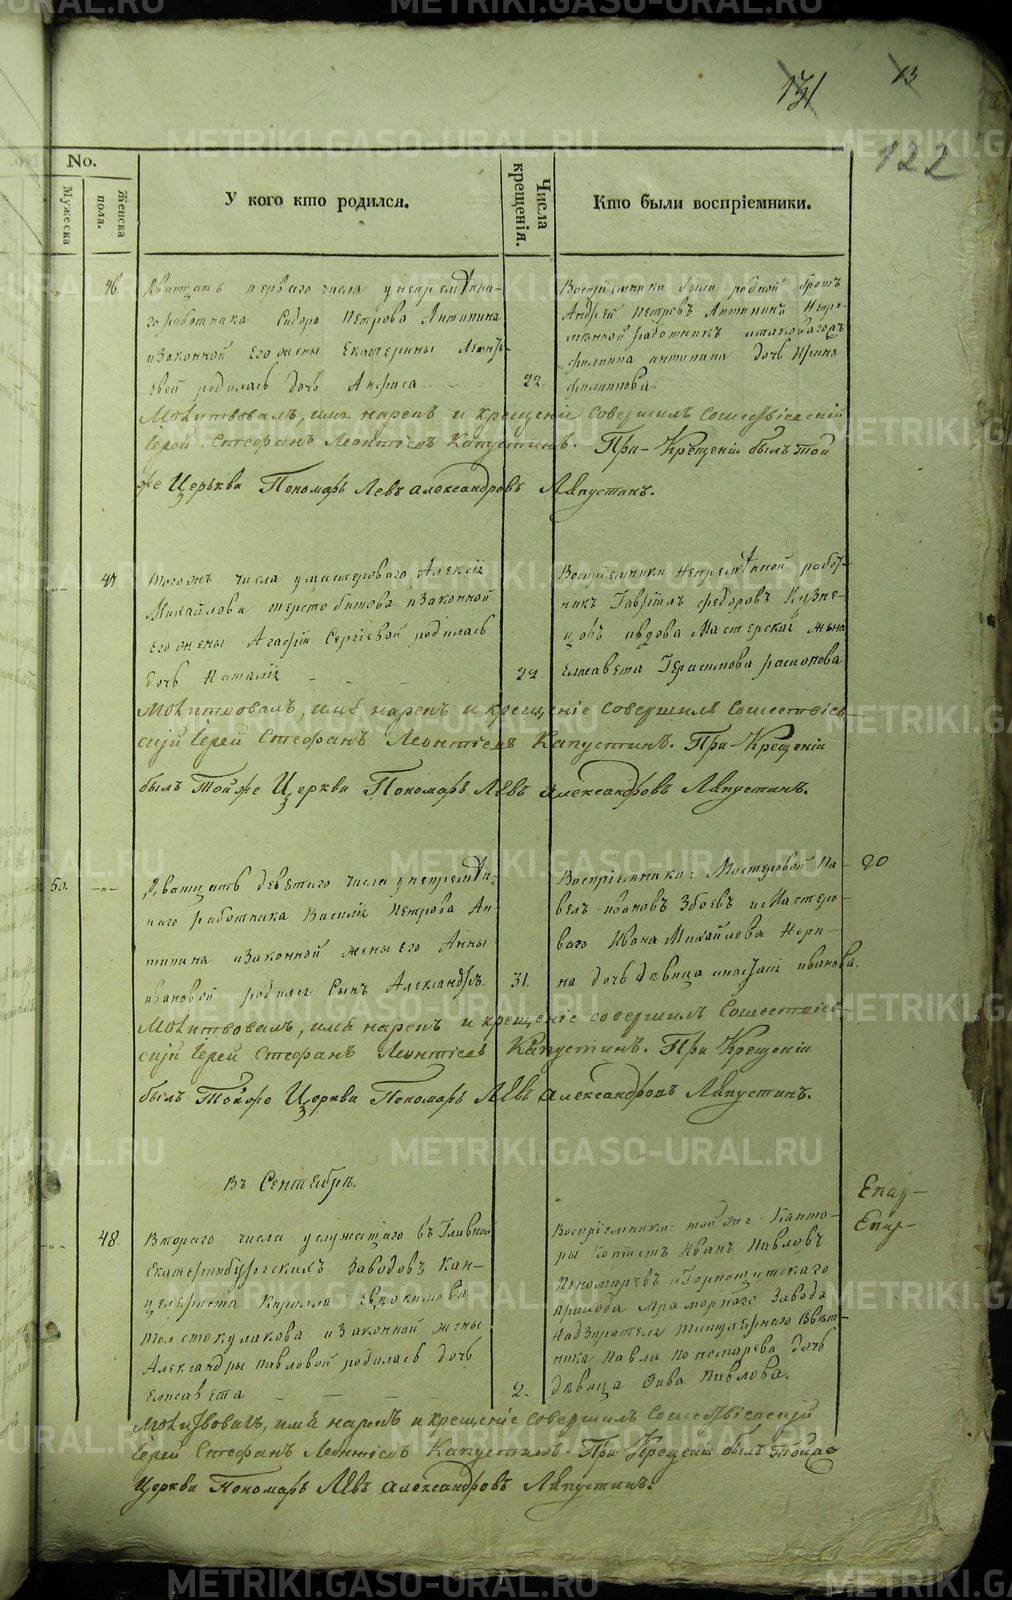 131
13
122
No.
Мужеска
Женска пола.
У кого кто родился.
Числа крещенія.
Кто были воспріемники.
46.
Дватцать перваго числа у непремѣнна-
го работника Сидора Петрова Антипина
и законной его жены Екатерины
родилась дочь Анфиса
22.
Воспріемники были родной братъ
Андрей Петровъ Антипинъ непре-
мѣнной работникъ
Филипа Антипина дочь Ирина
Филипова.
Молитвовалъ, имя нарекъ и крещеніе совершилъ Сошествіевскій
Іерей Стефанъ Леонтіевъ Капустинъ. При Крещеніи былъ той
же Церькви Пономарь Левъ Александровъ Ляпустинъ.
47
Тогожъ числа у мастероваго Алексія
Михайлова Шерстобитова и законной
его жены Агафіи Сергіевой родилась
дочь Наталія
22
Воспріемники непремѣнной работ-
никъ Гавріилъ Федоровъ Кузне-
цовъ и вдова Мастерская жена
Елисавета Герасимова
Молитвовалъ, имя нарекъ и крещеніе совершилъ Сошествіев-
скій Іерей Стефанъ Леонтіевъ Капустинъ. При Крещеніи
былъ Той же Церкви Пономарь Левъ Александровъ Ляпустинъ.
50.
Дватцать девятаго числа у непремѣн-
наго работника Василія Петрова Ан-
типина и законной жены его Анны
Ивановой родился сынъ Александръ.
31.
Воспріемники: Мастеровой Па-
велъ Ивановъ Збоевъ и Мастеро-
ваго Ивана Михайлова
на дочь дѣвица Анастасія Иванова.
20
Молитвовалъ, имя нарекъ и крещеніе совершилъ Сошествіев-
скій Іерей Стефанъ Леонтіевъ Капустинъ. При Крещеніи
былъ Той же Церкви Пономарь Левъ Александровъ Ляпустинъ.
Въ Сентябрѣ.
48.
Втораго числа у служащаго въ Главной
Екатеринбургскихъ Заводовъ Кан-
целяриста Кирилла Евдокимова
Толстокулакова и законной жены
Александры Павловой родилась дочь
Елисавета
2.
Воспріемники: той же Канто-
ры копіистъ Иванъ Павловъ
Пономаревъ и Горнощитскаго
прихода Мраморнаго Завода
Надзирателя Титулярнаго Совѣт-
ника Павла Пономарева дочь
дѣвица Павлова.
Молитвовалъ, имя нарекъ и крещеніе совершилъ Сошествіевскій
Іерей Стефанъ Леонтіевъ Капустинъ. При Крещеніи былъ Тойже
Церкви Пономарь Левъ Александровъ Ляпустинъ.
METRIKI.GASO-URAL.RU